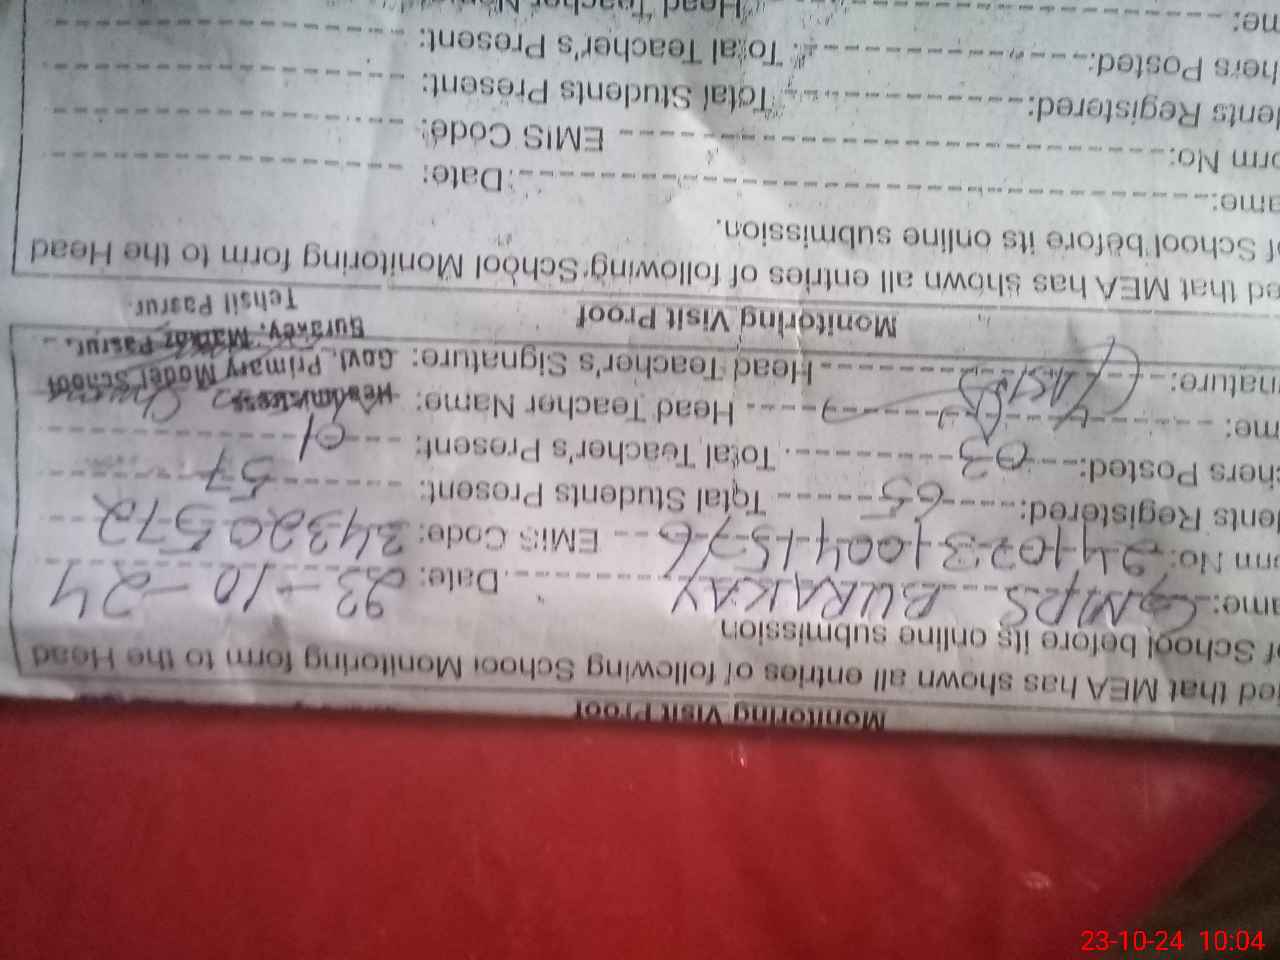 Monitoring Visit Proof
ed that MEA has shown all entries of following School Monitoring form to the Head
f School before its online submission
ame: GMPS BURAKAY Date: 23-10-24
rm No: 24102310041576 EMIS Code: 34320572
ents Registered: 65 Total Students Present: 57
hers Posted: 03 Total Teacher's Present: 01
me: Head Teacher Name: Headmistress
nature: Head Teacher's Signature: Govt. Primary Model School
Burakey, Pasrur.
Tehsil Pasrur.
Monitoring Visit Proof
ed that MEA has shown all entries of following School Monitoring form to the Head
f School before its online submission.
ame: Date:
orm No: EMIS Code:
ents Registered: Total Students Present:
hers Posted: Total Teacher's Present:
me: Head Teacher
23-10-24 10:04